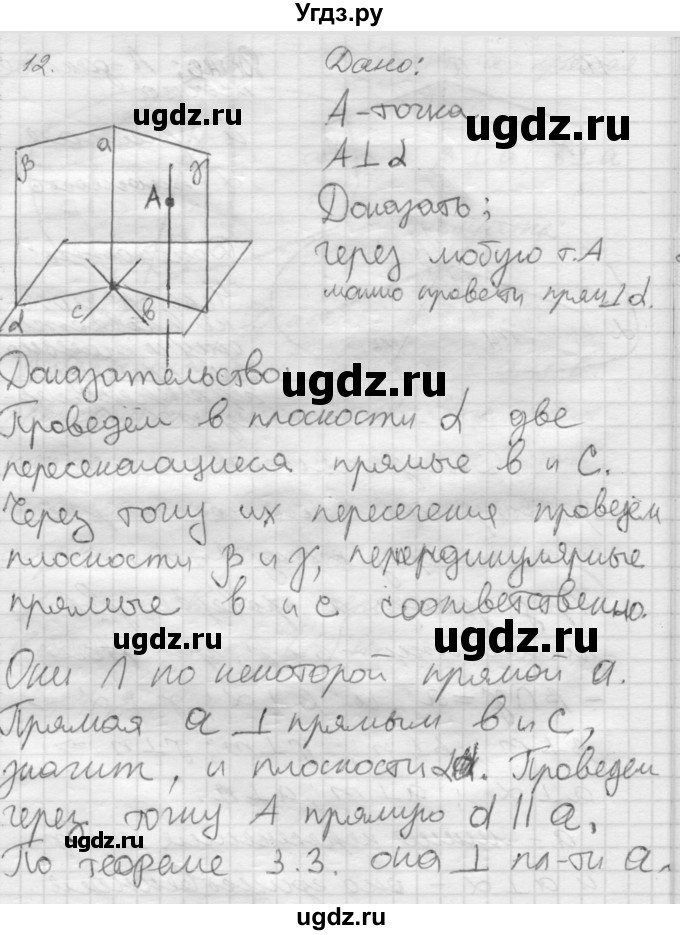 Угдз.ру
12.
Дано:
А-точка
А⊥α
Доказать;
через любую т.А
можно провести прям⊥α.
β
a
γ
A
α
c
в
Доказательство:
Проведём в плоскости α две
пересекающиеся прямые в и с.
Через точку их пересечения проведём
плоскости β и γ, перпендикулярные
прямые в и с соответственно.
Они Λ по некоторой прямой а.
Прямая а ⊥ прямым в и с,
значит, и плоскости α. Проведем
через точку А прямую d || a.
По теореме 3.3. она ⊥ пл-ти а.
ugdz.ru
ugdz.ru
ugdz.ru
ugdz.ru
ugdz.ru
ugdz.ru
ugdz.ru
ugdz.ru